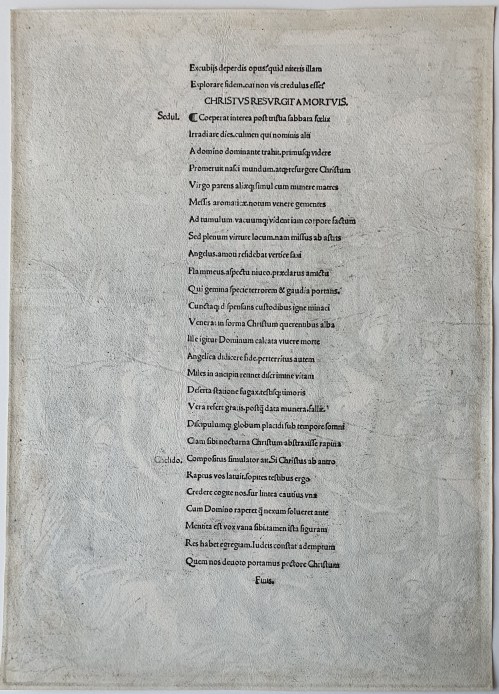 Excubijs deperdis opus? quid niteris illam
Explorare fidem, cui non vis credulus esse?
CHRISTVS RESVRGIT A MORTVIS.
Sedul. ¶ Coeperat interea post tristia sabbata fœlix
Irradiare dies, culmen qui nominis alti
A domino dominante trahit, primusq; videre
Promeruit nasci mundum, atq; resurgere Christum
Virgo parens aliæq; simul cum munere matres
Messis aromaticæ, notum venere gementes
Ad tumulum vacuumq; vident iam corpore factum
Sed plenum virtute locum, nam missus ab astris
Angelus, amoti residebat vertice saxi
Flammeus, aspectu niueo, præclarus amictu
Qui gemina specie terrorem & gaudia portans.
Cunctaq; d spensans custodibus igne minaci
Venerat in forma Christum querentibus alba
Ille igitur Dominum calcata viuere morte
Angelica didicere fide, perterritus autem
Miles in ancipiti retinet discrimine vitam
Deserta statione fugax, testisq; timoris
Vera refert gratis, postq; data munera, fallit.
Discipulumq; globum placidi sub tempore somni
Clam sibi nocturna Christum abstraxisse rapina
Chelido. Compositus simulator ait, Si Christus ab antro
Raptus vos latuit, sopites testibus ergo
Credere cogite nos, fur lintea cautius vna
Cum Domino raperet q̃ nexum solueret ante
Mentita est vox vana sibi, tamen ista figuram
Res habet egregiam, Iudeis constat ademptum
Quem nos deuoto portamus pectore Christum
Finis.